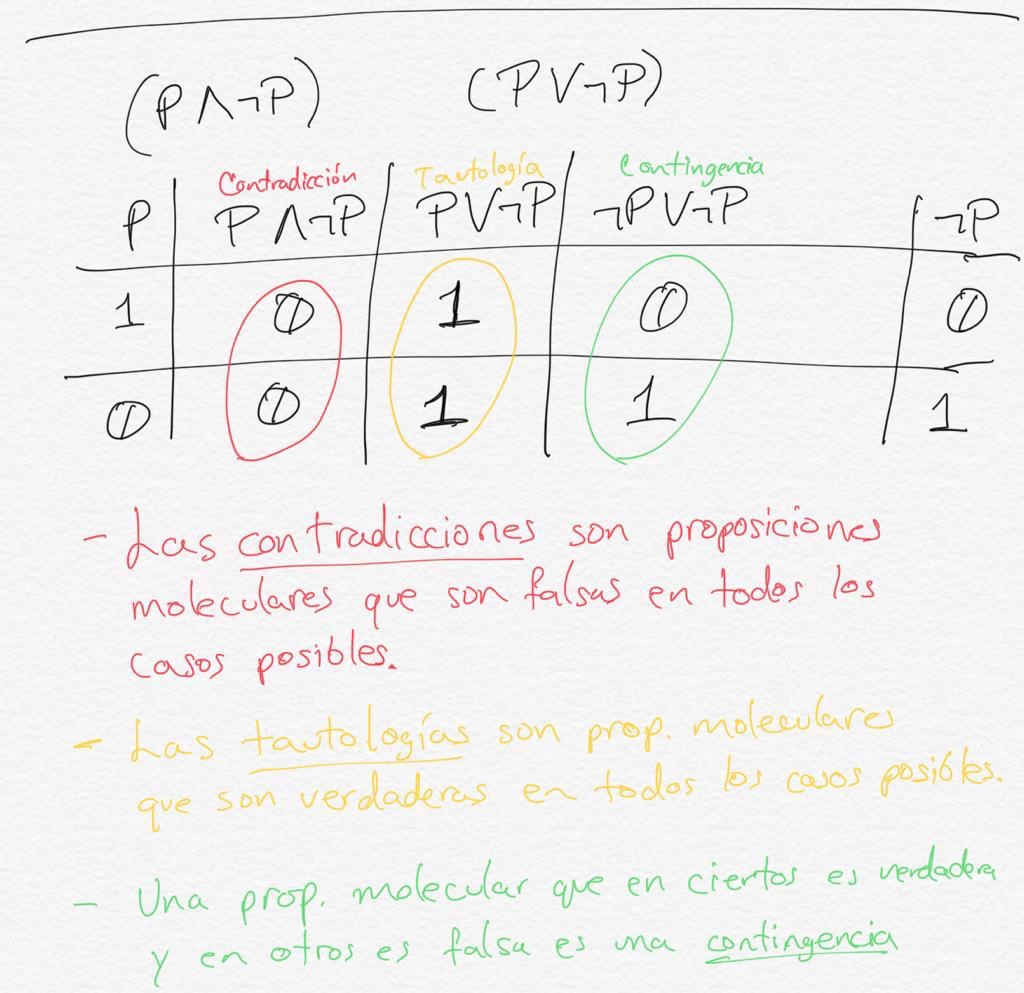 (P∧¬P) (P∨¬P)
Contradicción Tautología Contingencia
P P∧¬P P∨¬P ¬P∨¬P ¬P
1 0 1 0 0
0 0 1 1 1
- Las contradicciones son proposiciones
moleculares que son falsas en todos los
casos posibles.
- Las tautologías son prop. moleculares
que son verdaderas en todos los casos posibles.
- Una prop. molecular que en ciertos es verdadera
y en otros es falsa es una contingencia